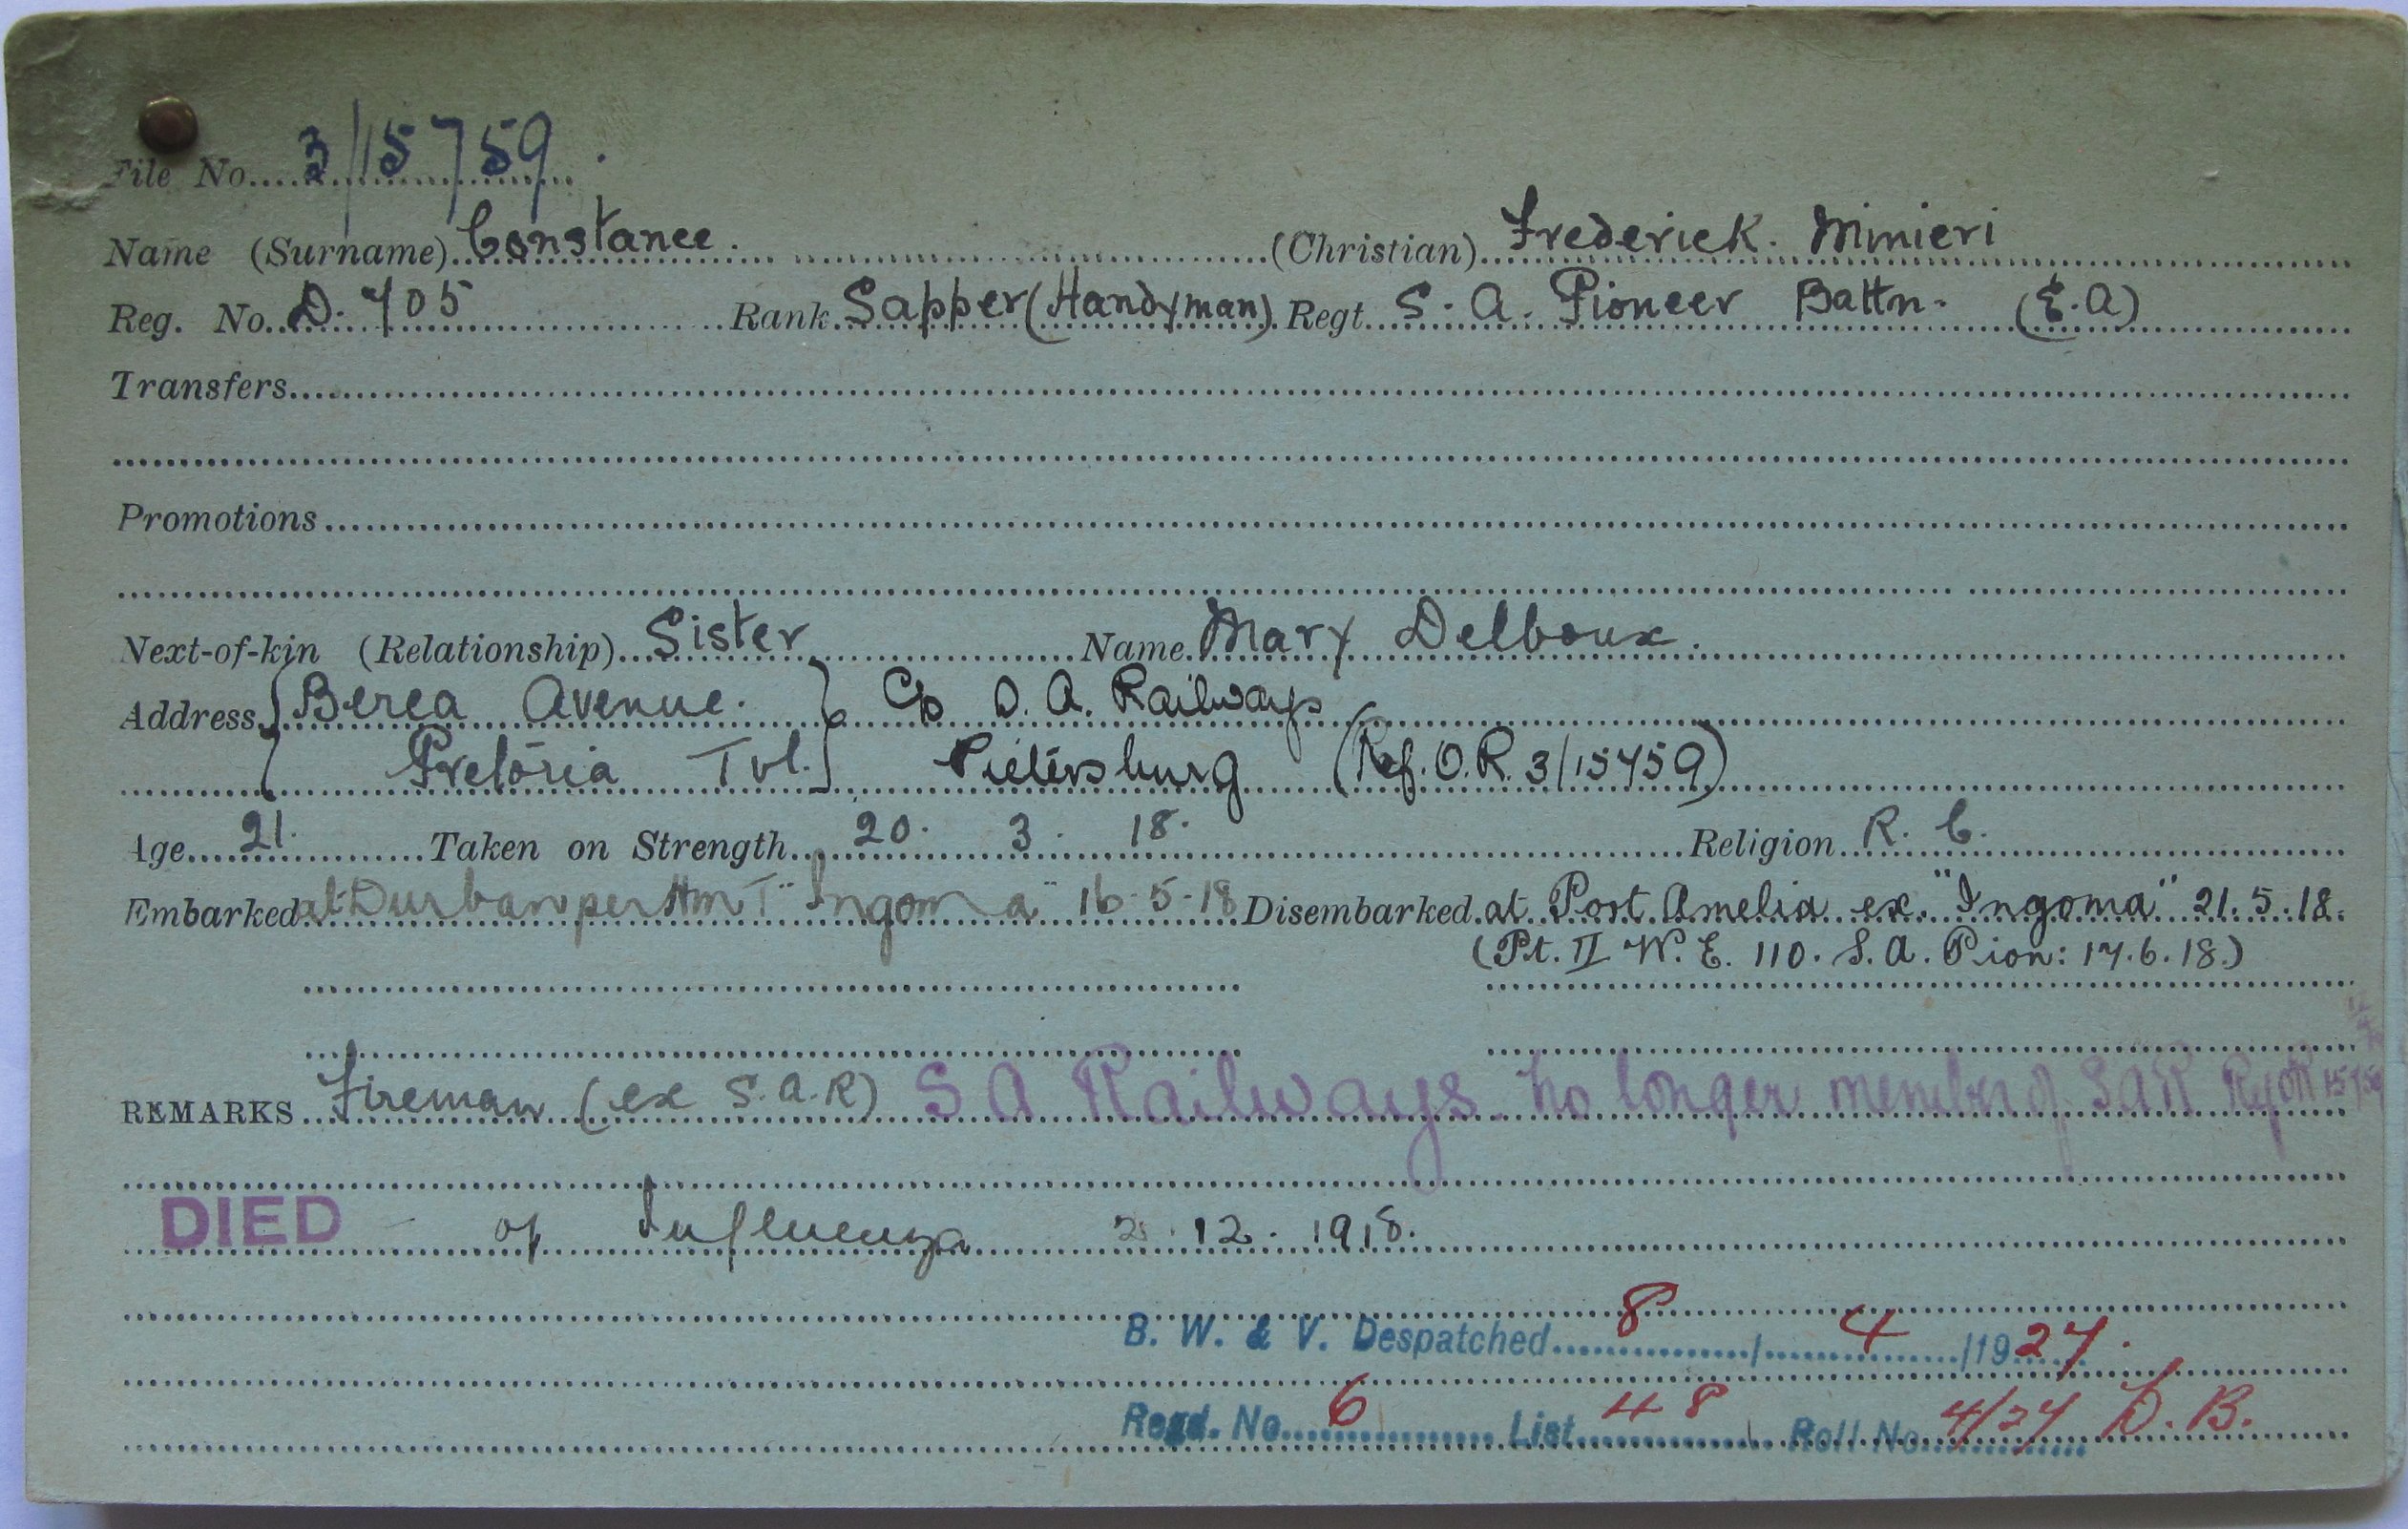 File No. 3/15759.
Name (Surname) Constance. (Christian) Frederick. Minieri
Reg. No. D. 705 Rank Sapper (Handyman) Regt. S. A. Pioneer Battn. (E.A)
Transfers
Promotions
Next-of-kin (Relationship) Sister Name Mary Delboux.
Address {Berea Avenue.} C/o S. A. Railways
{Pretoria Tvl.} Pietersburg (Ref. O.R. 3/15759)
Age 21. Taken on Strength 20. 3. 18. Religion R. C.
Embarked at Durban per HMT "Ingoma" 16-5-18 Disembarked at Port Amelia ex "Ingoma" 21.5.18.
(Pt. II W. E. 110. S. A. Pion: 17.6.18.)
REMARKS Fireman (ex S.A.R) S A Railways. No longer member of SAR 15759
DIED - of Influenza 2. 12. 1918.
B. W. & V. Despatched 8 / 4 /1927.
Regd. No. 6 List 48 Roll No. 4/27 D. B.